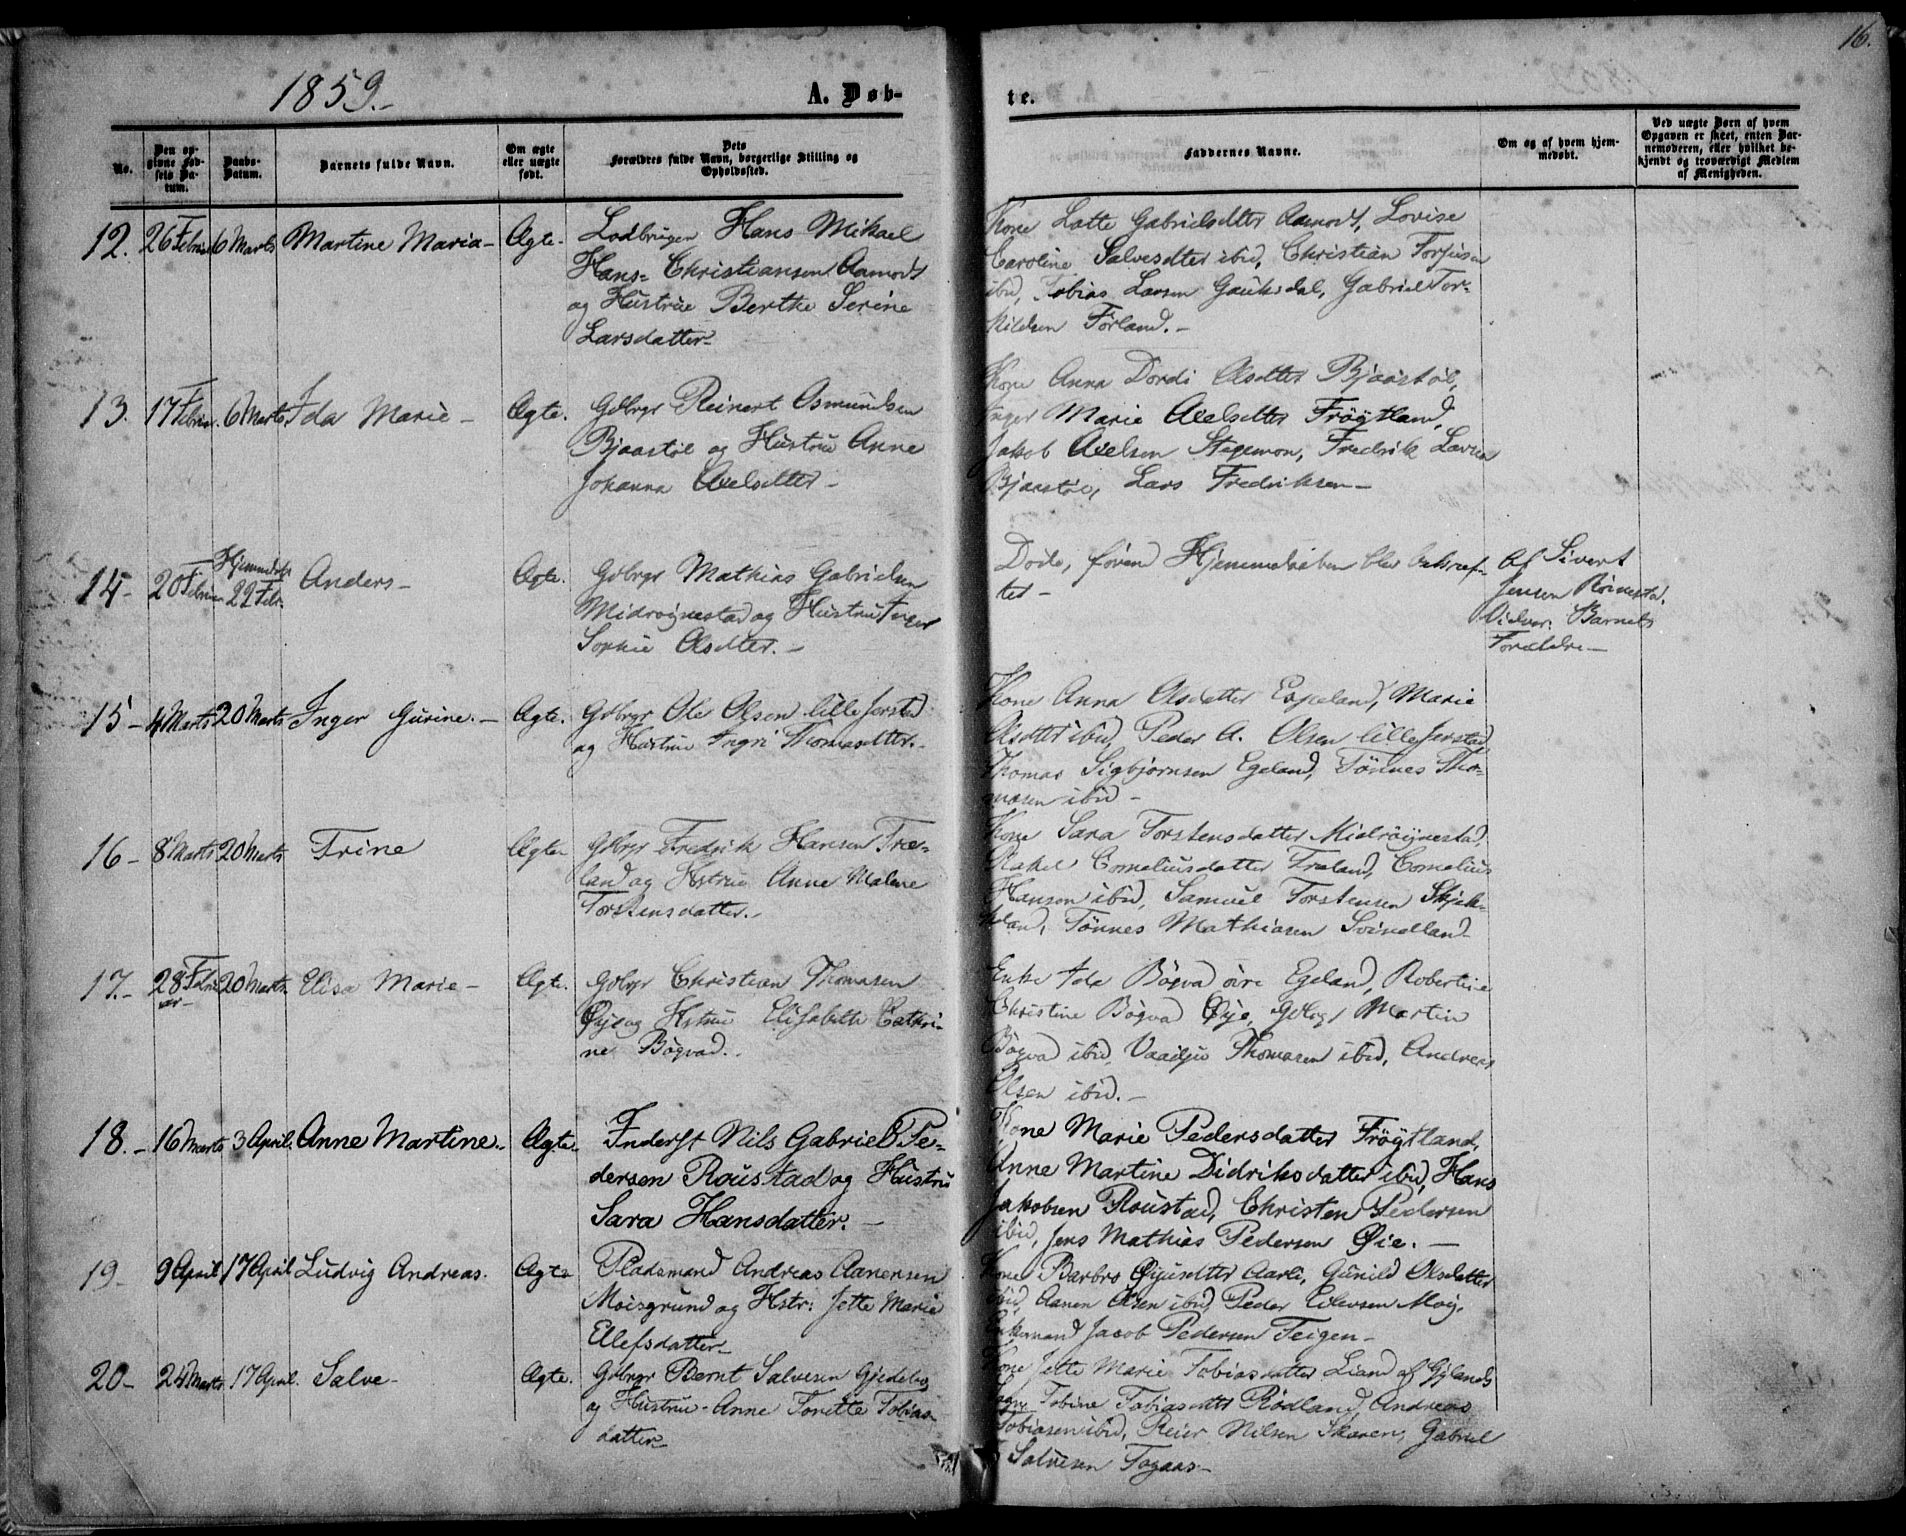 16.
1859.-
A. Døb-
te.
No.
Den op-
givne Fød-
sels Da-
tum.
Daabs-
Datum.
Barnets fulde Navn.
Om ægte
eller uægte
født.
Dets
Forældres fulde Navn, borgerlige Stilling og
Opholdssted.
Faddernes Navne.
Om og af hvem hjem-
medøbt.
Ved uægte Børn af hvem
Opgaven er skeet, enten Bar-
nemoderen, eller hvilket be-
kjendt og troværdigt Medlem
af Menigheden.
12. 26 Februar 6 Marts Martine Maria- Ægte-
Hans Mikael
Hans- Christiansen Aamodt
og Hustrue Berthe Serine
Larsdatter-
Kone Gabrielsdtter Aamodt, Lovise
Caroline Salvesdtter ibid, Christian
ibid, Tobias Larsen Gauksdal, Gabriel Tor-
kildsen Førland.-
13. 17 Februar. 6 Marts Ida Marie- Ægte.
Gdbrgr Reinert Osmundsen
Bjaastøl og Hustrue Anne
Johanna Axelsdtter-
Kone Anna Dordi Olsdtter Bjaastøl,
Inger Marie Axelsdtter Frøytland,
Jakob Axelsen Stegemon, Fredrik
Bjaastøl, Lars Fredriksen-
14- 20 Februar Hjemmedøbt
22 Febr. Anders- Ægte.
Gdbrgr Mathias Gabrielsen
Midrøinestad og Hustrue Inger
Sophie Olsdtter.-
Døde, føren Hjemmedaaben blev bekræf-
tet-
Af Sivert
Jensen Røinestad.
Barnets
Forældre-
15- 4 Marts 20 Marts Inger Gurine.- Ægte.
Gdbrgr Ole Olsen lille Jerstad
og Hustrue Ingri Thomasdtter.-
Kone Anna Olsdatter Espeland, Marie
Olsdtter ibid, Peder A. Olsen lille Jerstad,
Thomas Sigbjørnsen Egeland, Tønnes Tho-
masen ibid-
16- 8 Marts 20 Marts Trine Ægte
Gdbrgr Fredrik Hansen Træ-
land og Hstrue Anne Malene
Torstensdatter.-
Kone Sara Torstensdatter Midrøynestad,
Rakel Corneliusdatter Træland, Cornelius
Hanson ibid, Samuel Torstensen Skjek-
land, Tønnes Mathiasen Svindland-
17.- 28 Febru-
ar- 20 Marts. Elisa Marie- Ægte.
Gdbrgr Christian Thomasen
Øye og Hstrue Elisabeth Cathri-
ne Bøgvad.
Enke Ida Bøgvad øvre Egeland, Robertine
Christine Bøgvad Øye, Martin
Bøgvad ibid, Thomasen ibid, Andreas
Olsen ibid.-
18.- 16 Marts 3 April. Anne Martine.- Ægte.
Inderst Nils Gabriel Pe-
dersen Roustad og Hustru
Sara Hansdatter.-
Kone Marie Pedersdatter Frøytland,
Anne Martine Didriksdatter ibid, Hans
Jakobsen Roustad, Christen Pedersen
ibid, Jens Mathias Pedersen Øie.-
19- 9 April 17 April Ludvig Andreas. Ægte
Pladsmand Andreas Aanensen
Moisgrund og Hstr: Jette Marie
Ellefsdatter-
Kone Barbro Aarli, Gunild Olsdatter
ibid, Aanen Olsen ibid, Peder Eilevsen Moy,
Enkemand Jacob Pedersen Feigen-
20- 24 Marts 17 April. Salve- Ægte.
Gdbrgr Bernt Salvesen
og Hustrue- Anne Tonette Tobias-
datter-
Kone Jette Marie Tobiasdatter Liand af Gylands
Tobine Tobiasdatt Rødland, Andreas
Tobiasen ibid, Reier Nilsen Skaren, Gabriel
Salvesen Fogaas-